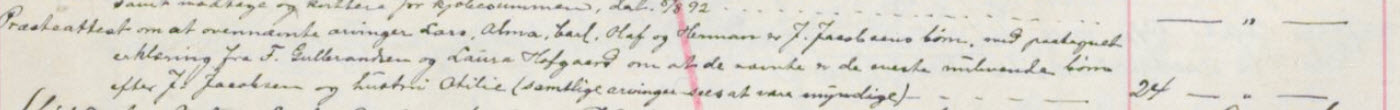 samt modtage og kvittere for kjøbesummen, dat. 5/8 92 — " —
Præsteattest om at ovennævnte arvinger Lars, Alma, Carl, Olaf og Herman er J. Jacobsens børn, med paategnet
erklæring fra F. Gulbrandsen og Laura Hofgaard om at de nævnte er de eneste nulevende børn
efter J. Jacobsen og hustru Otilie (samtlige arvinger sees at være myndige) — 24 — " —